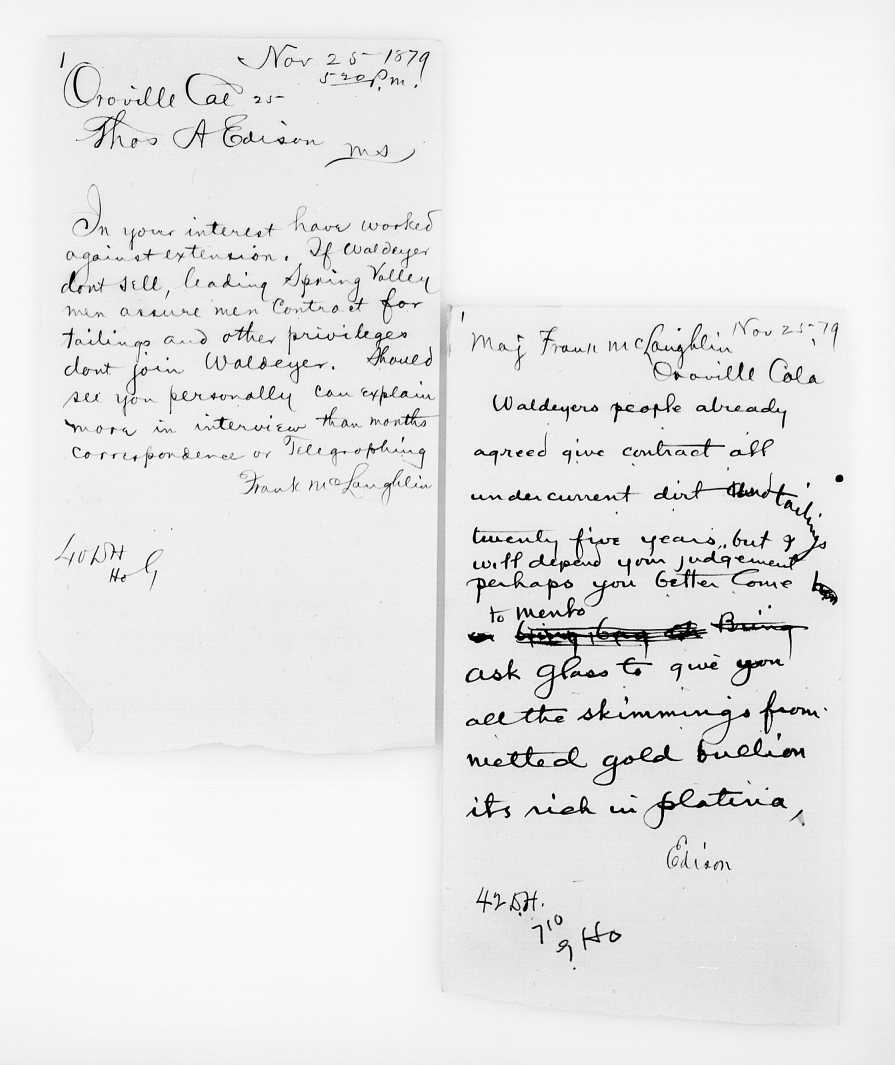 1
Nov 25 1879
5 20 P.m.
Oroville Cal 25
Thos A Edison
In your interest have worked
against extension. If Waldeyer
dont sell, leading Spring Valley
men assure men Contract for
tailings and other privileges
dont join Waldeyer. Should
see you personally can explain
more in interview than months
correspondence or Telegraphing
Frank McLaughlin
40 DH
Ho G
1
Nov 25 79
Maj Frank McLaughlin
Oroville Cala
Waldeyers people already
agreed give contract all
undercurrent dirt and tailings
twenty five years, but
will depend your judgement
perhaps you better Come
to Menlo
Bring
ask Glass to give you
all the skimmings from
melted gold bullion
its rich in platina,
Edison
42 DH.
710
g Ho